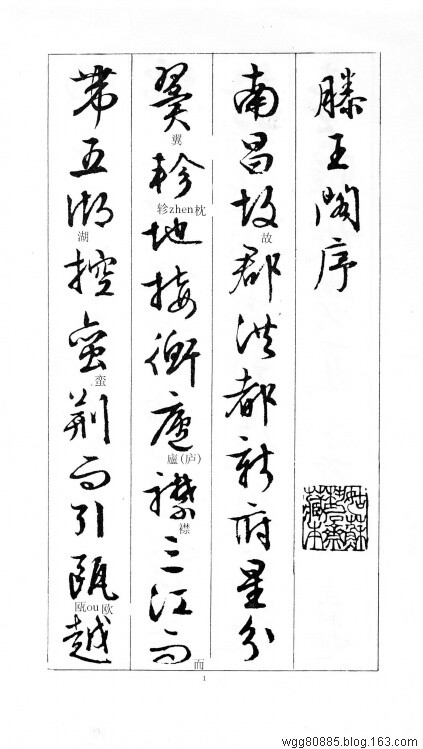 滕王閣序
南昌故郡洪都新府星分
故
翼軫地接衡廬襟三江而
翼
轸zhen枕
廬(庐)
襟
而
帶五湖控蠻荊而引甌越
湖
蛮
瓯ou欧
1
wgg80885.blog.163.com